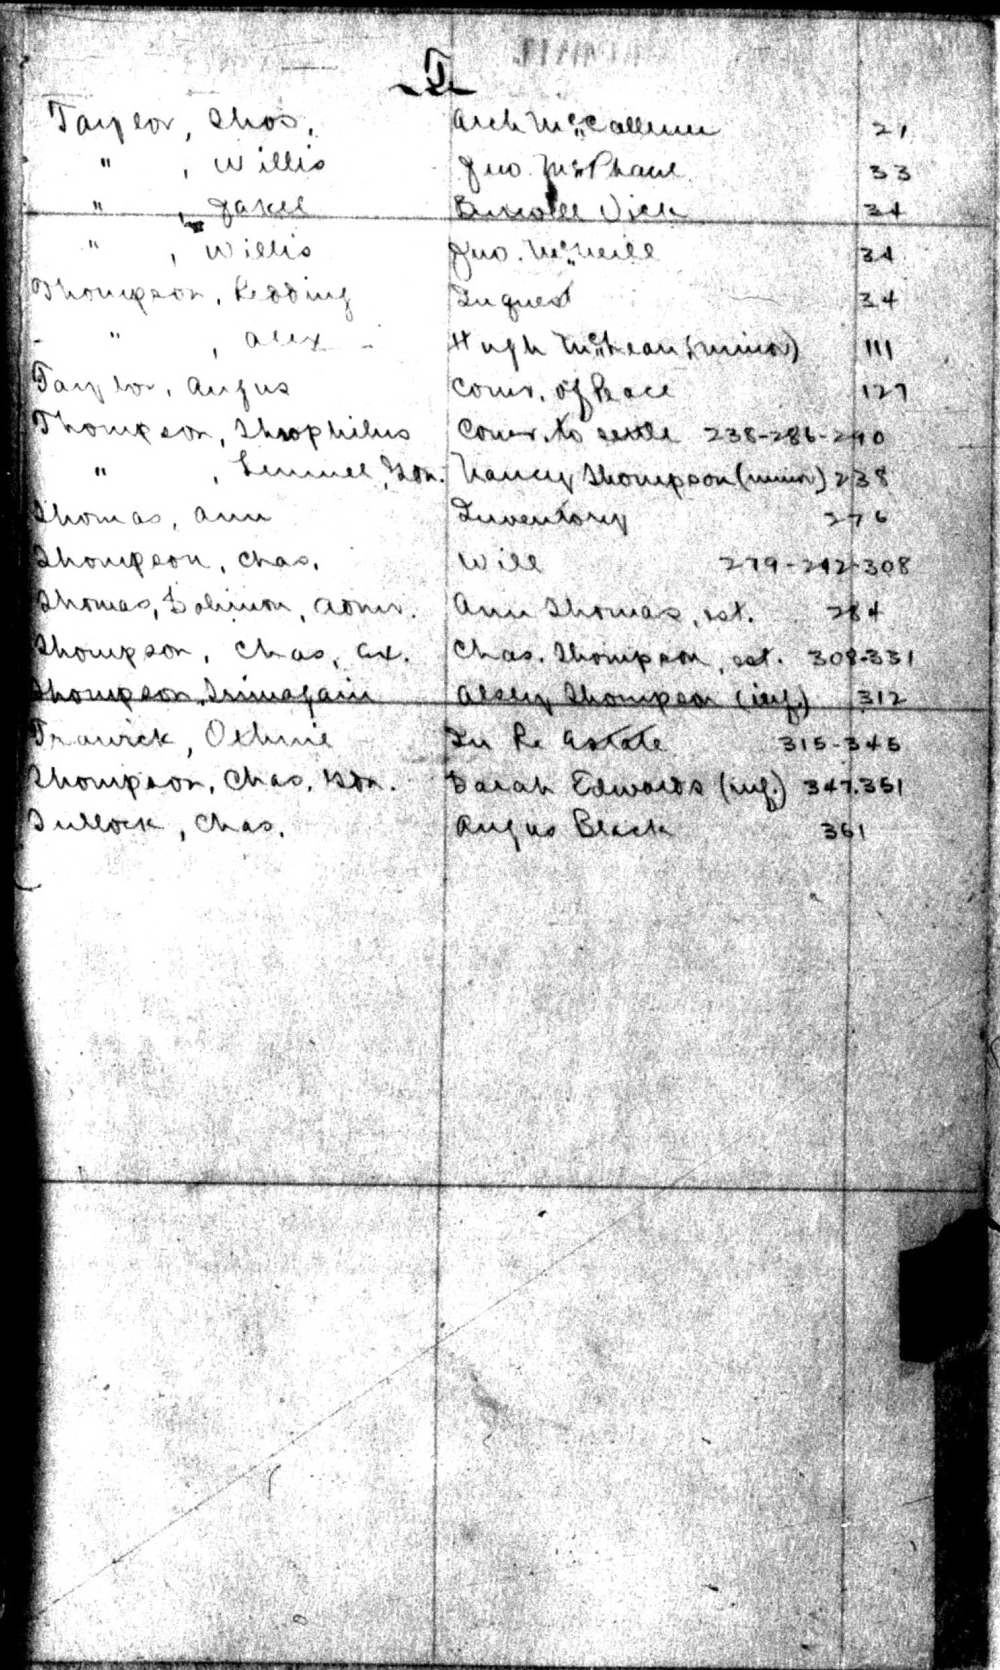 T
Taylor, Thos. Arch McCallum 21
" , Willis Jno. McPhaul 33
" , Jakel Burwell Vick 34
" , Willis Jno. McNeill 34
Thompson, Redding Inquest 34
" , Alex Hugh McLean (minor) 111
Taylor, Angus Comr. of Peace 127
Thompson, Theophilus Comr. to settle 238-286-290
" , Lemuel, Gdn. Nancy Thompson (minor) 238
Thomas, Ann Inventory 276
Thompson, Chas. Will 279-292-308
Thomas, Solimon, Admr. Ann Thomas, est. 284
Thompson, Chas, Ex. Chas. Thompson, est. 308-331
Thompson, Alsey Thompson (inf.) 312
Trawick, In Re Estate 315-345
Thompson, Chas, Gdn. Sarah Edwards (inf.) 347.351
Tullock, Chas. Angus Black 361